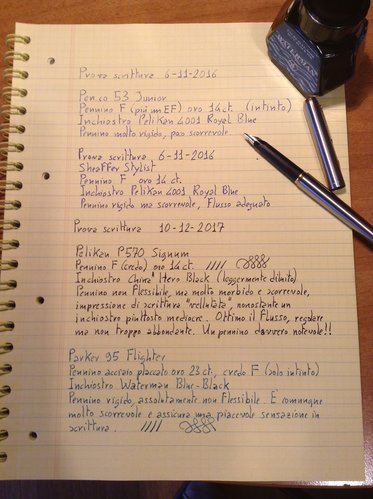 Prova scrittura 6-11-2016
Penco 53 Junior
Pennino F (più un EF) oro 14 ct. (intinto)
Inchiostro Pelikan 4001 Royal Blue
Pennino molto rigido, poco scorrevole.
Prova scrittura 6-11-2016
Sheaffer Stylist
Pennino F oro 14 ct.
Inchiostro Pelikan 4001 Royal Blue
Pennino rigido ma scorrevole, flusso adeguato
Prova scrittura 10-12-2017
Pelikan P570 Signum
Pennino F (credo) oro 14 ct.
Inchiostro China Hero Black (leggermente diluito)
Pennino non flessibile, ma molto morbido e scorrevole,
impressione di scrittura "vellutata", nonostante un
inchiostro piuttosto mediocre. Ottimo il flusso, regolare
ma non troppo abbondante. Un pennino davvero notevole!!
Parker 95 Flighter
Pennino acciaio placcato oro 23 ct., credo F (solo intinto)
Inchiostro Waterman Blue-Black
Pennino rigido, assolutamente non flessibile. E' comunque
molto scorrevole e assicura una piacevole sensazione in
scrittura.
WATERMAN